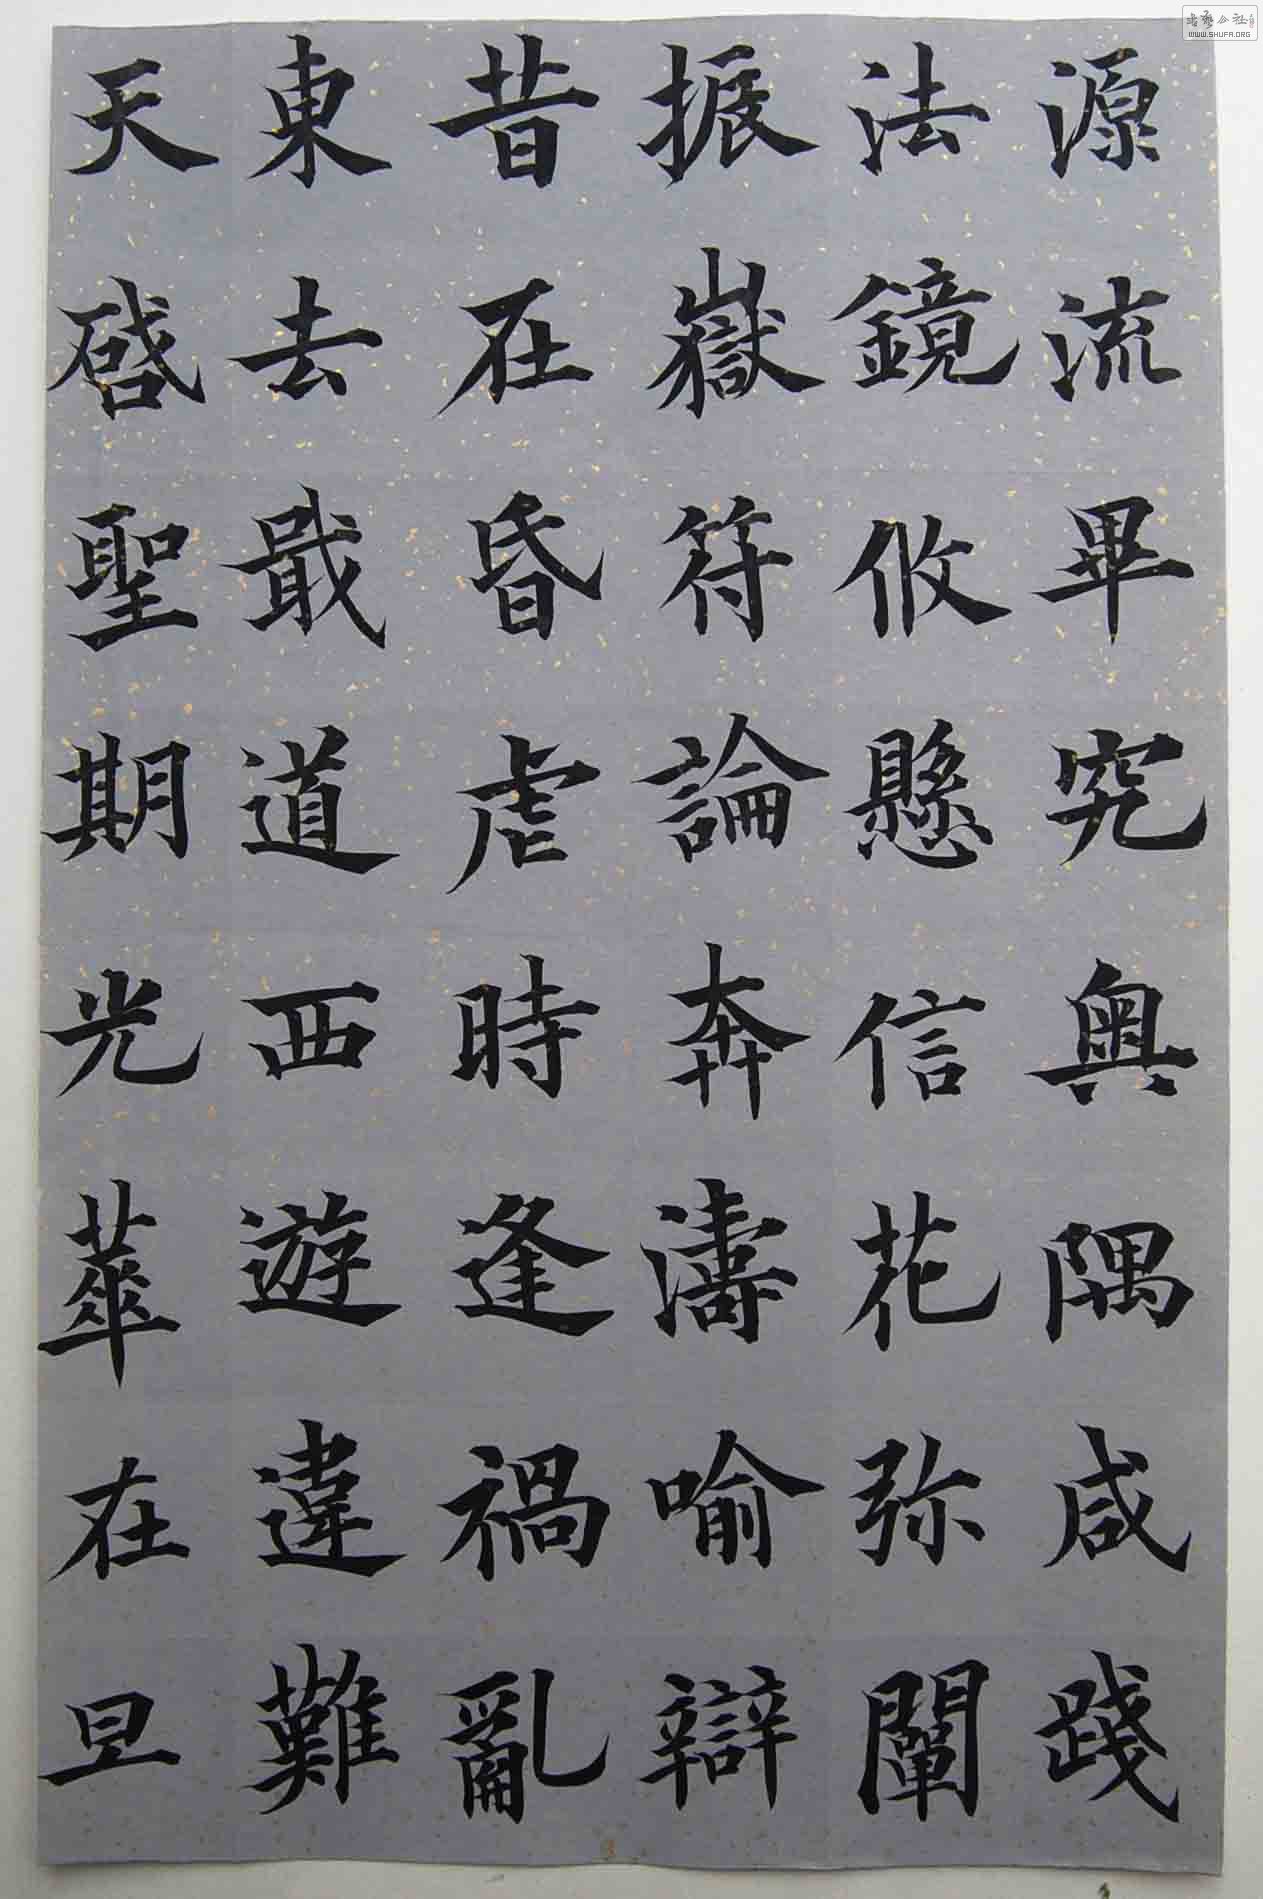 源流畢究奧隅咸踐
法鏡攸懸信花弥闡
振嶽符論奔濤喻辯
昔在昏虐時逢禍亂
東去戢道西遊違難
天啓聖期光華在旦
书艺公社
WWW.SHUFA.ORG